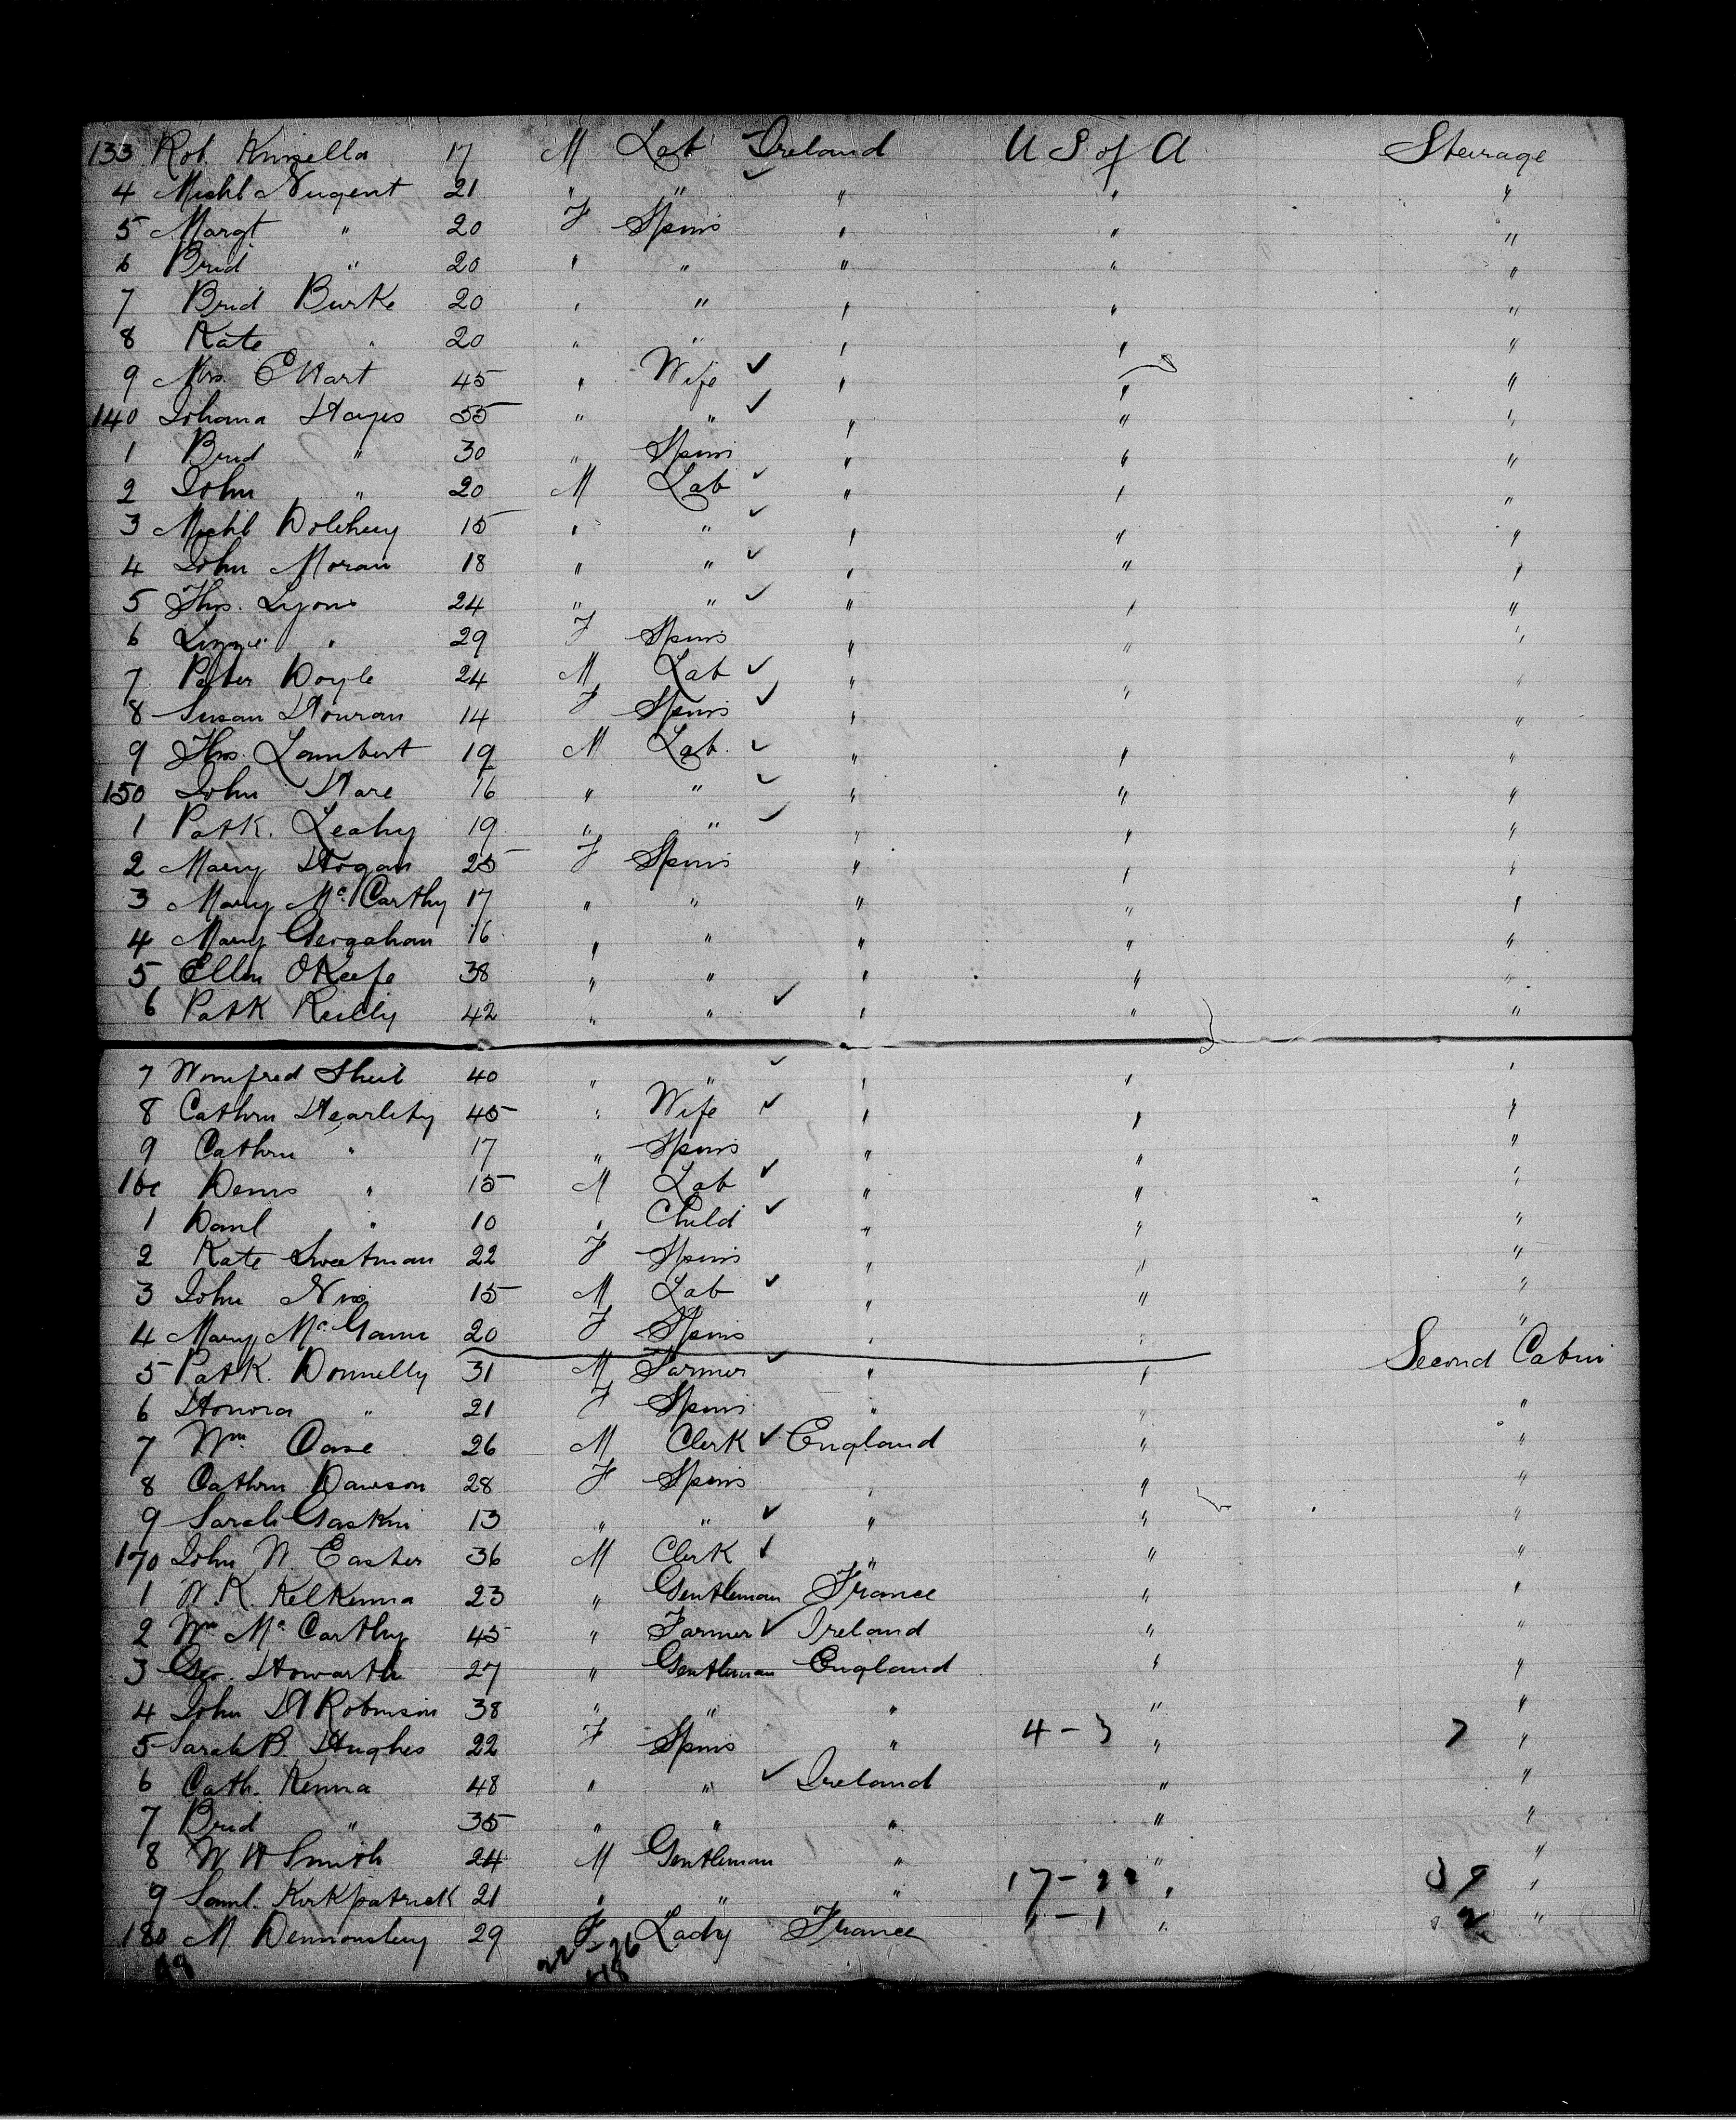 133 Rob. Kinsella 17 M Lab Ireland U S of A Steerage
4 Michl Nugent 21 " " " " "
5 Margt " 20 F Spins " " "
6 Brid " 20 " " " " "
7 Brid Burke 20 " " " " "
8 Kate " 20 " " " " "
9 Mrs. E Hart 45 " Wife " " "
140 Johana Hayes 55 " " " " "
1 Brid " 30 " Spins " " "
2 John " 20 M Lab " " "
3 Michl 15 " " " " "
4 John Moran 18 " " " " "
5 Thos. Lyons 24 " " " " "
6 Lizzie " 29 F Spins " " "
7 Peter Doyle 24 M Lab " " "
8 Susan Houran 14 F Spins " " "
9 Thos. Lambert 19 M Lab. " " "
150 John Hare 16 " " " " "
1 Patk. Leahy 19 " " " " "
2 Mary Hogan 25 F Spins " " "
3 Mary McCarthy 17 " " " " "
4 Mary Geogahan 16 " " " " "
5 Ellen OKeefe 38 " " " " "
6 Patk Reilly 42 " " " " "
7 Winifred Sheil 40 " " " " "
8 Cathrn 45 " Wife " " "
9 Cathrn " 17 " Spins " " "
160 Denis " 15 M Lab " " "
1 Danl " 10 " Child " " "
2 Kate Sweetman 22 F Spins " " "
3 John Nix 15 M Lab " " "
4 Mary McGann 20 F Spins " " "
5 Patk. Donnelly 31 M Farmer " " Second Cabin
6 Honora " 21 F Spins " " "
7 Wm. Case 26 M Clerk England " "
8 Cathrn Dawson 28 F Spins " " "
9 Sarah Gaskin 13 " " " " "
170 John W. Easter 36 M Clerk " " "
1 W. K. Kelkenna 23 " Gentleman France " "
2 Wm McCarthy 45 " Farmer Ireland " "
3 Geo. Howarth 27 " Gentleman England " "
4 John H Robinson 38 " " " " "
5 Sarah B. Hughes 22 F Spins " 4-3 " 7 "
6 Cath. Kenna 48 " " Ireland " "
7 Brid " 35 " " " " "
8 W H Smith 24 M Gentleman " " "
9 Saml. Kirkpatrick 21 " " " 17-22 " 39 "
180 M 29 F Lady France 1-1 " 2 "
22-26
48